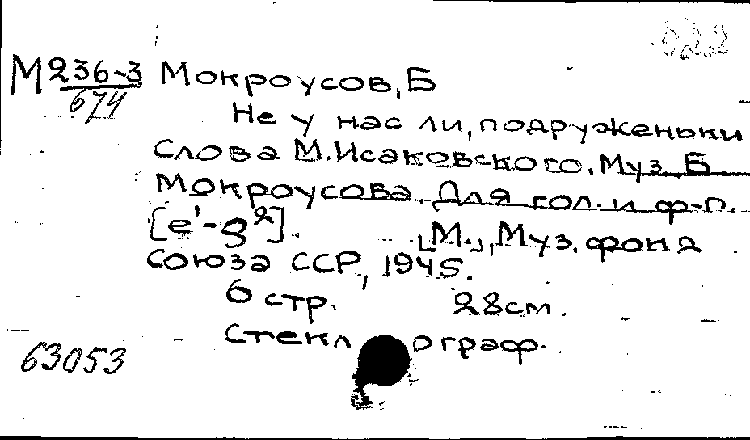 М236-3 Мокроусов, Б
674
Не у нас ли, подруженьки
Слова М. Исаковского. Муз. Б.
Мокроусова. Для гол. и ф-п.
[e'-g²]. [М.], Муз. фонд
Союза ССР, 1945.
6 стр. 28см.
Стеклограф.
63053